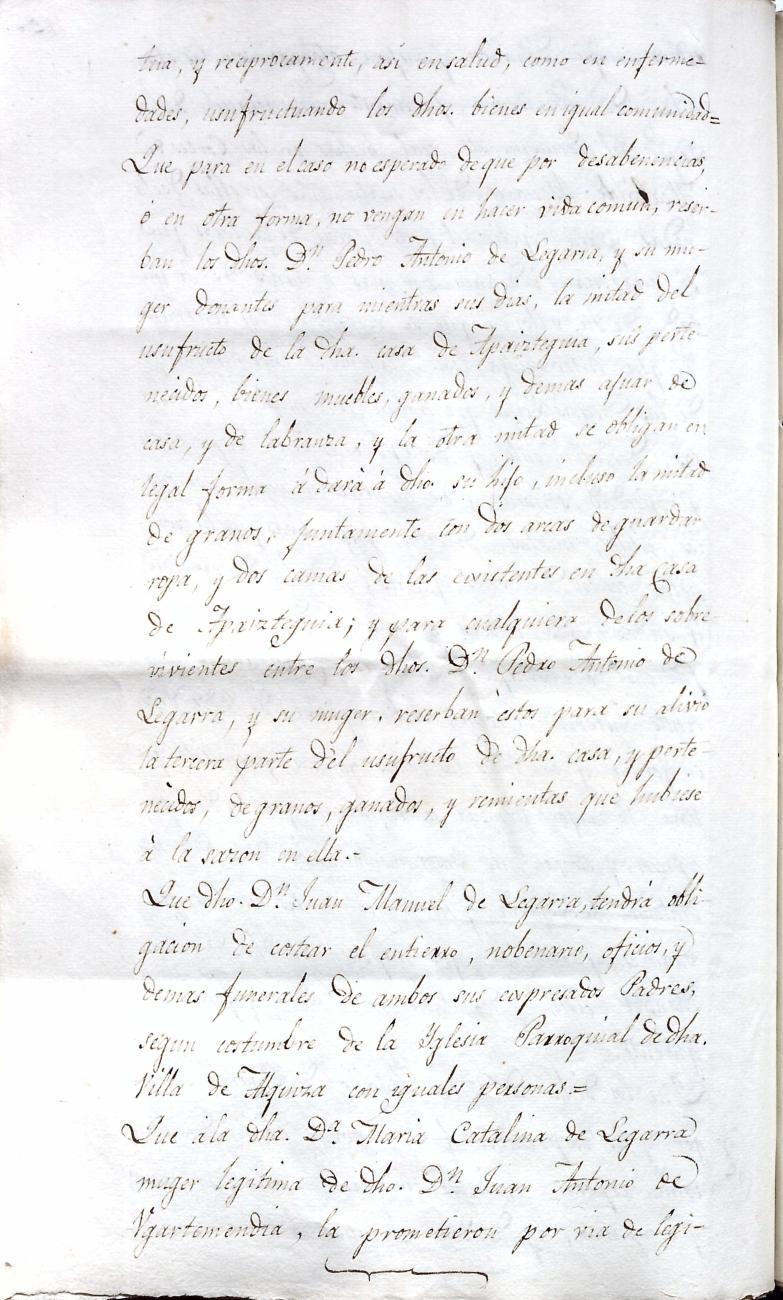 tua, y reciprocamente, asi en salud, como en enferme=
dades, usufructuando los dhos. bienes en igual comunidad=
Que para en el caso no esperado de que por desabenencias,
ó en otra forma, no vengan en hacer vida comun, reser-
ban los dhos. Dn. Pedro Antonio de Legarra, y su mu-
ger donantes para mientras sus dias, la mitad del
usufructo de la dha. casa de Apaizteguia, sus perte-
necidos, bienes muebles, ganados, y demas ajuar de
casa, y de labranza, y la otra mitad se obligan en
legal forma á dará á dho. su hijo, incluso la mitad
de granos, juntamente con dos arcas de guardar
ropa, y dos camas de las existentes en dha casa
de Apaizteguia; y para cualquiera de los sobre-
vivientes entre los dhos. Dn. Pedro Antonio de
Legarra, y su muger, reserban éstos para su alivio
la tercera parte dél usufructo de dha. casa, y perte-
necidos, de granos, ganados, y remientas que hubiese
à la sazon en ella.-
Que dho. Dn. Juan Manuel de Legarra, tendrá obli-
gacion de costear el entierro, nobenario, oficios, y
demas funerales de ambos sus expresados Padres,
segun costumbre de la Yglesia Parroquial de dha.
Villa de Alquiza con iguales personas=
Que à la dha. Da. Maria Catalina de Legarra
muger legitima de dho. Dn. Juan Antonio de
Ugartemendia, la prometieron por via de legi-